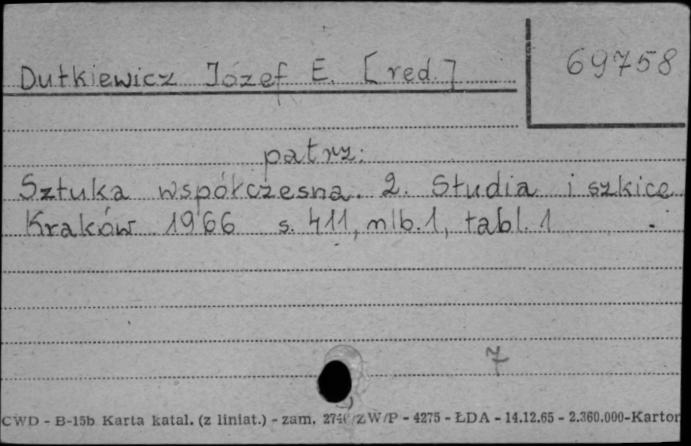 69758
Dutkiewicz Józef E. [red.]
patrz:
Sztuka współczesna. 2. Studia i szkice
Kraków 1966 s. 411, nlb. 1, tabl. 1
7
CWD - B-15b Karta katal. (z liniat.) - zam. ZW/P - 4275 - ŁDA - 14.12.65 - 2.360.000-Karton